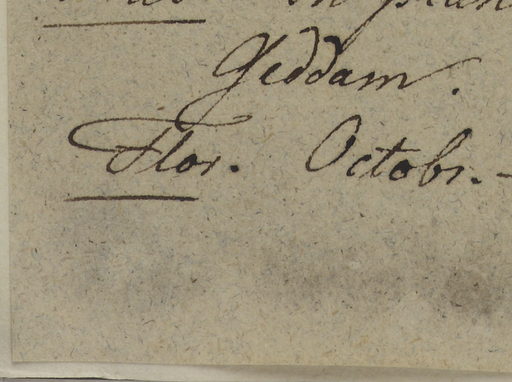 in
Yeddam.
Flor. Octobr. -